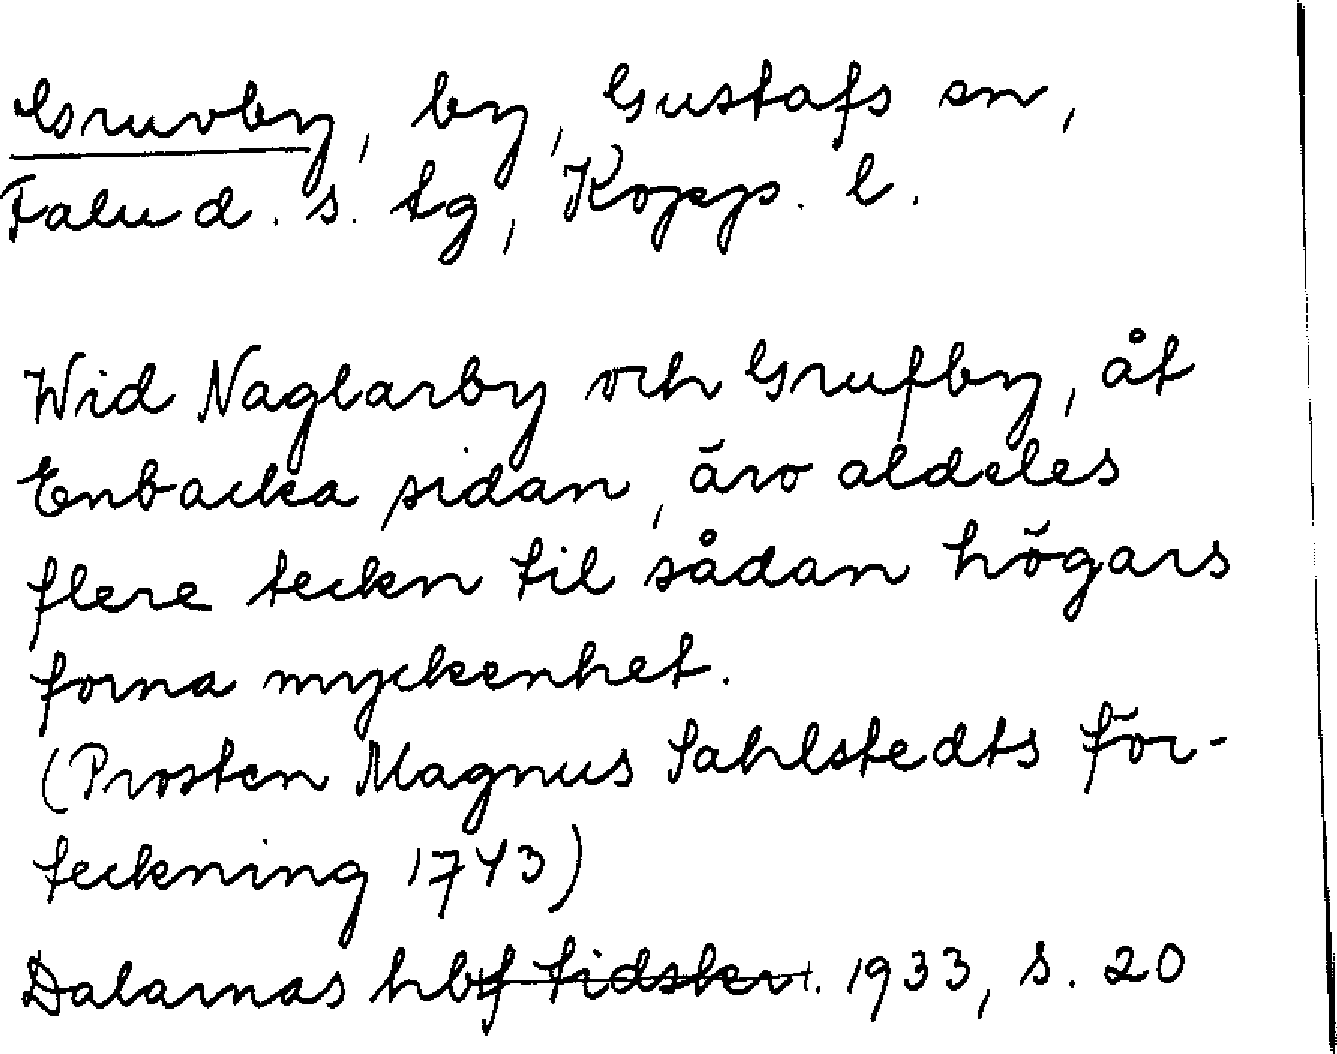 Gruvby, by, Gustafs sn,
Falu d. s. tg, Kopp. l.
Wid Naglarby och Grufby, åt
Enbacka sidan, äro aldeles
flere teckn til sådan högars
forna myckenhet.
(Prosten Magnus Sahlstedts för-
teckning 1743)
Dalarnas hbf tidskr. 1933, s. 20